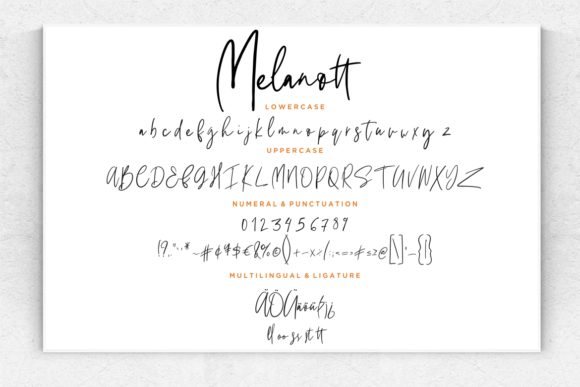 Melanott
LOWERCASE
a b c d e f g h i j k l m n o p q r s t u v w x y z
UPPERCASE
A B C D E F G H I J K L M N O P Q R S T U V W X Y Z
NUMERAL & PUNCTUATION
0 1 2 3 4 5 6 7 8 9
MULTILINGUAL & LIGATURE
ll oo ss tt tt